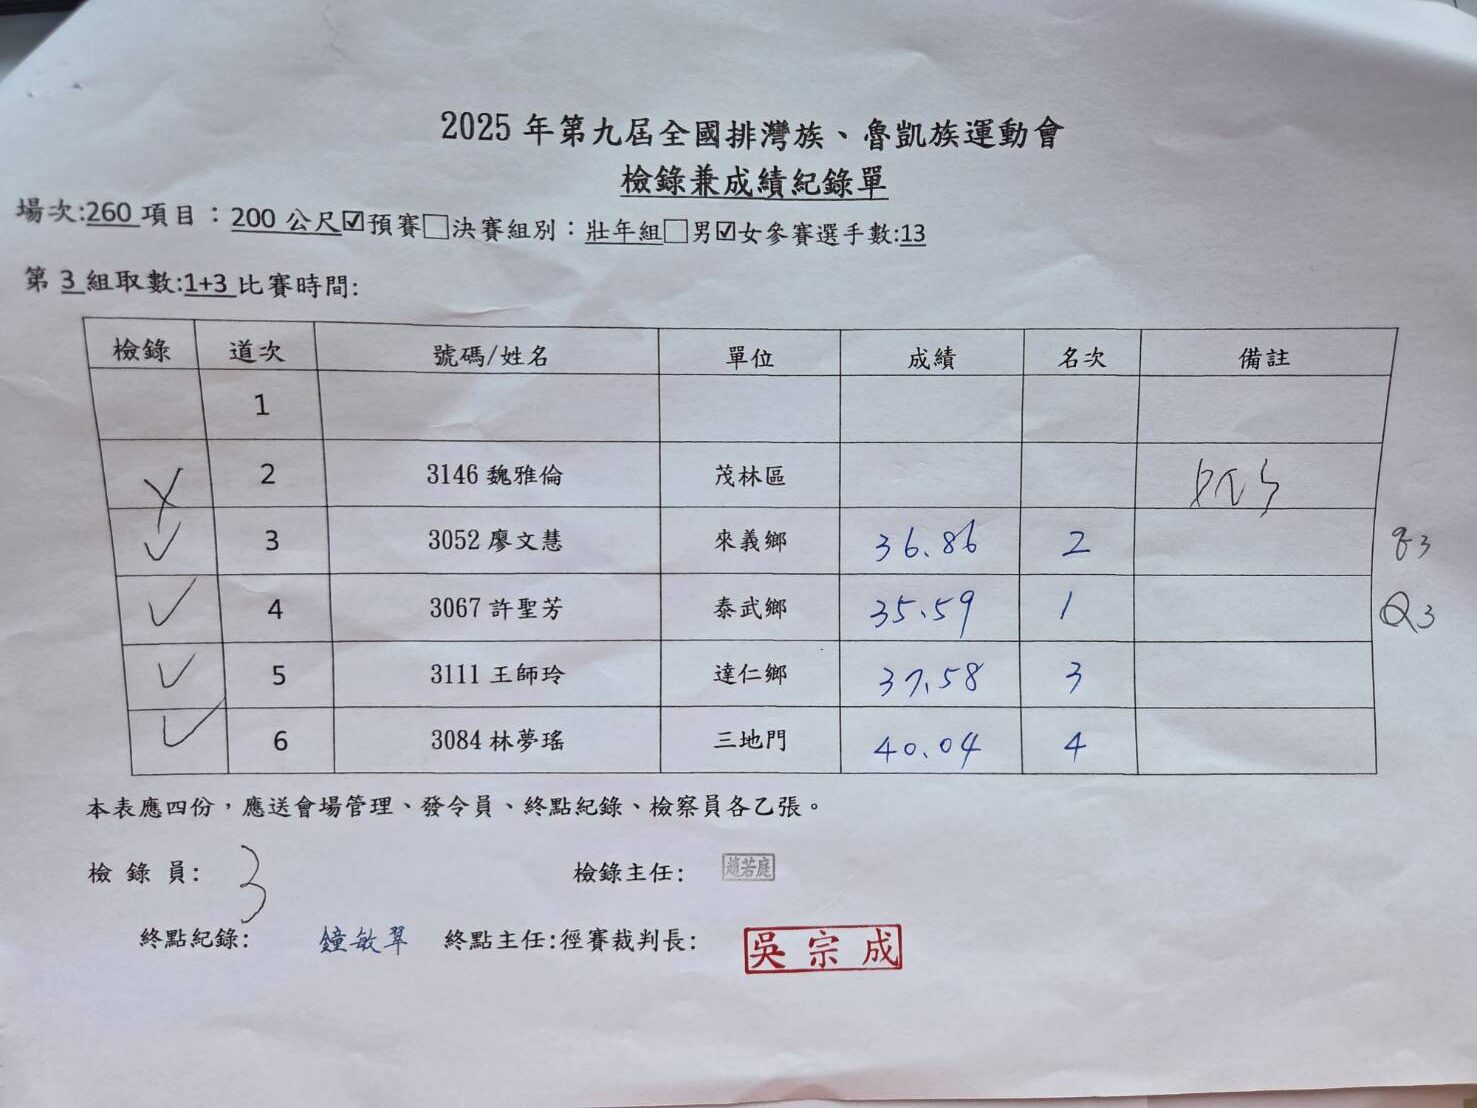 2025 年第九屆全國排灣族、魯凱族運動會
檢錄兼成績紀錄單
場次:260 項目：200 公尺☑預賽□決賽組別：壯年組□男☑女參賽選手數:13
第 3 組取數:1+3 比賽時間:
檢錄 道次 號碼/姓名 單位 成績 名次 備註
1
✗ 2 3146 魏雅倫 茂林區 DNS
✓ 3 3052 廖文慧 來義鄉 36.86 2 q3
✓ 4 3067 許聖芳 泰武鄉 35.59 1 Q3
✓ 5 3111 王師玲 達仁鄉 37.58 3
✓ 6 3084 林夢瑤 三地門 40.04 4
本表應四份，應送會場管理、發令員、終點紀錄、檢察員各乙張。
檢 錄 員: 3 檢錄主任: 趙若庭
終點紀錄: 鐘敏翠 終點主任:徑賽裁判長: 吳宗成